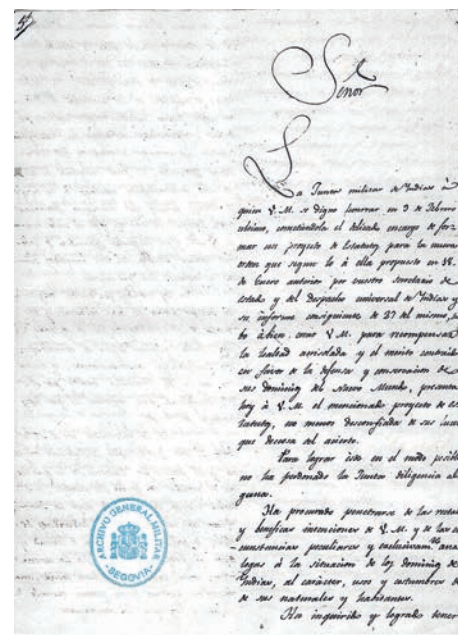 5
Señor
La Junta militar de Indias à
quien V. M. se digno honrar en 3 de Febrero
ultimo, cometiendola el delicado encargo de for-
mar un proyecto de Estatutos para la nueva
orden que segun lo à ella propuesto en 18.
de Enero anterior por vuestro Secretario de
Estado y del Despacho universal de Indias y
su informe consiguiente de 27 del mismo,
bo à bien V. M. para recompensar
la lealtad acrisolada y el merito contraido
en favor de la defensa y conservacion de
sus dominios del Nuevo Mundo, presenta
hoy à V. M. el mencionado proyecto de es
tatutos, no menos desconfiada de sus luces
que deseosa del acierto.
Para lograr este en el modo posible
no ha perdonado la Junta diligencia al
guna.
Ha procurado penetrarse de las rectas
y beneficas intenciones de V. M. y de las
cunstancias peculiares y exclusivam.te ana
logas à la situacion de los dominios de
Indias, al carácter, usos y costumbres
de sus naturales y habitantes.
Ha inquirido y logrado tener
ARCHIVO GENERAL MILITAR
-SEGOVIA-